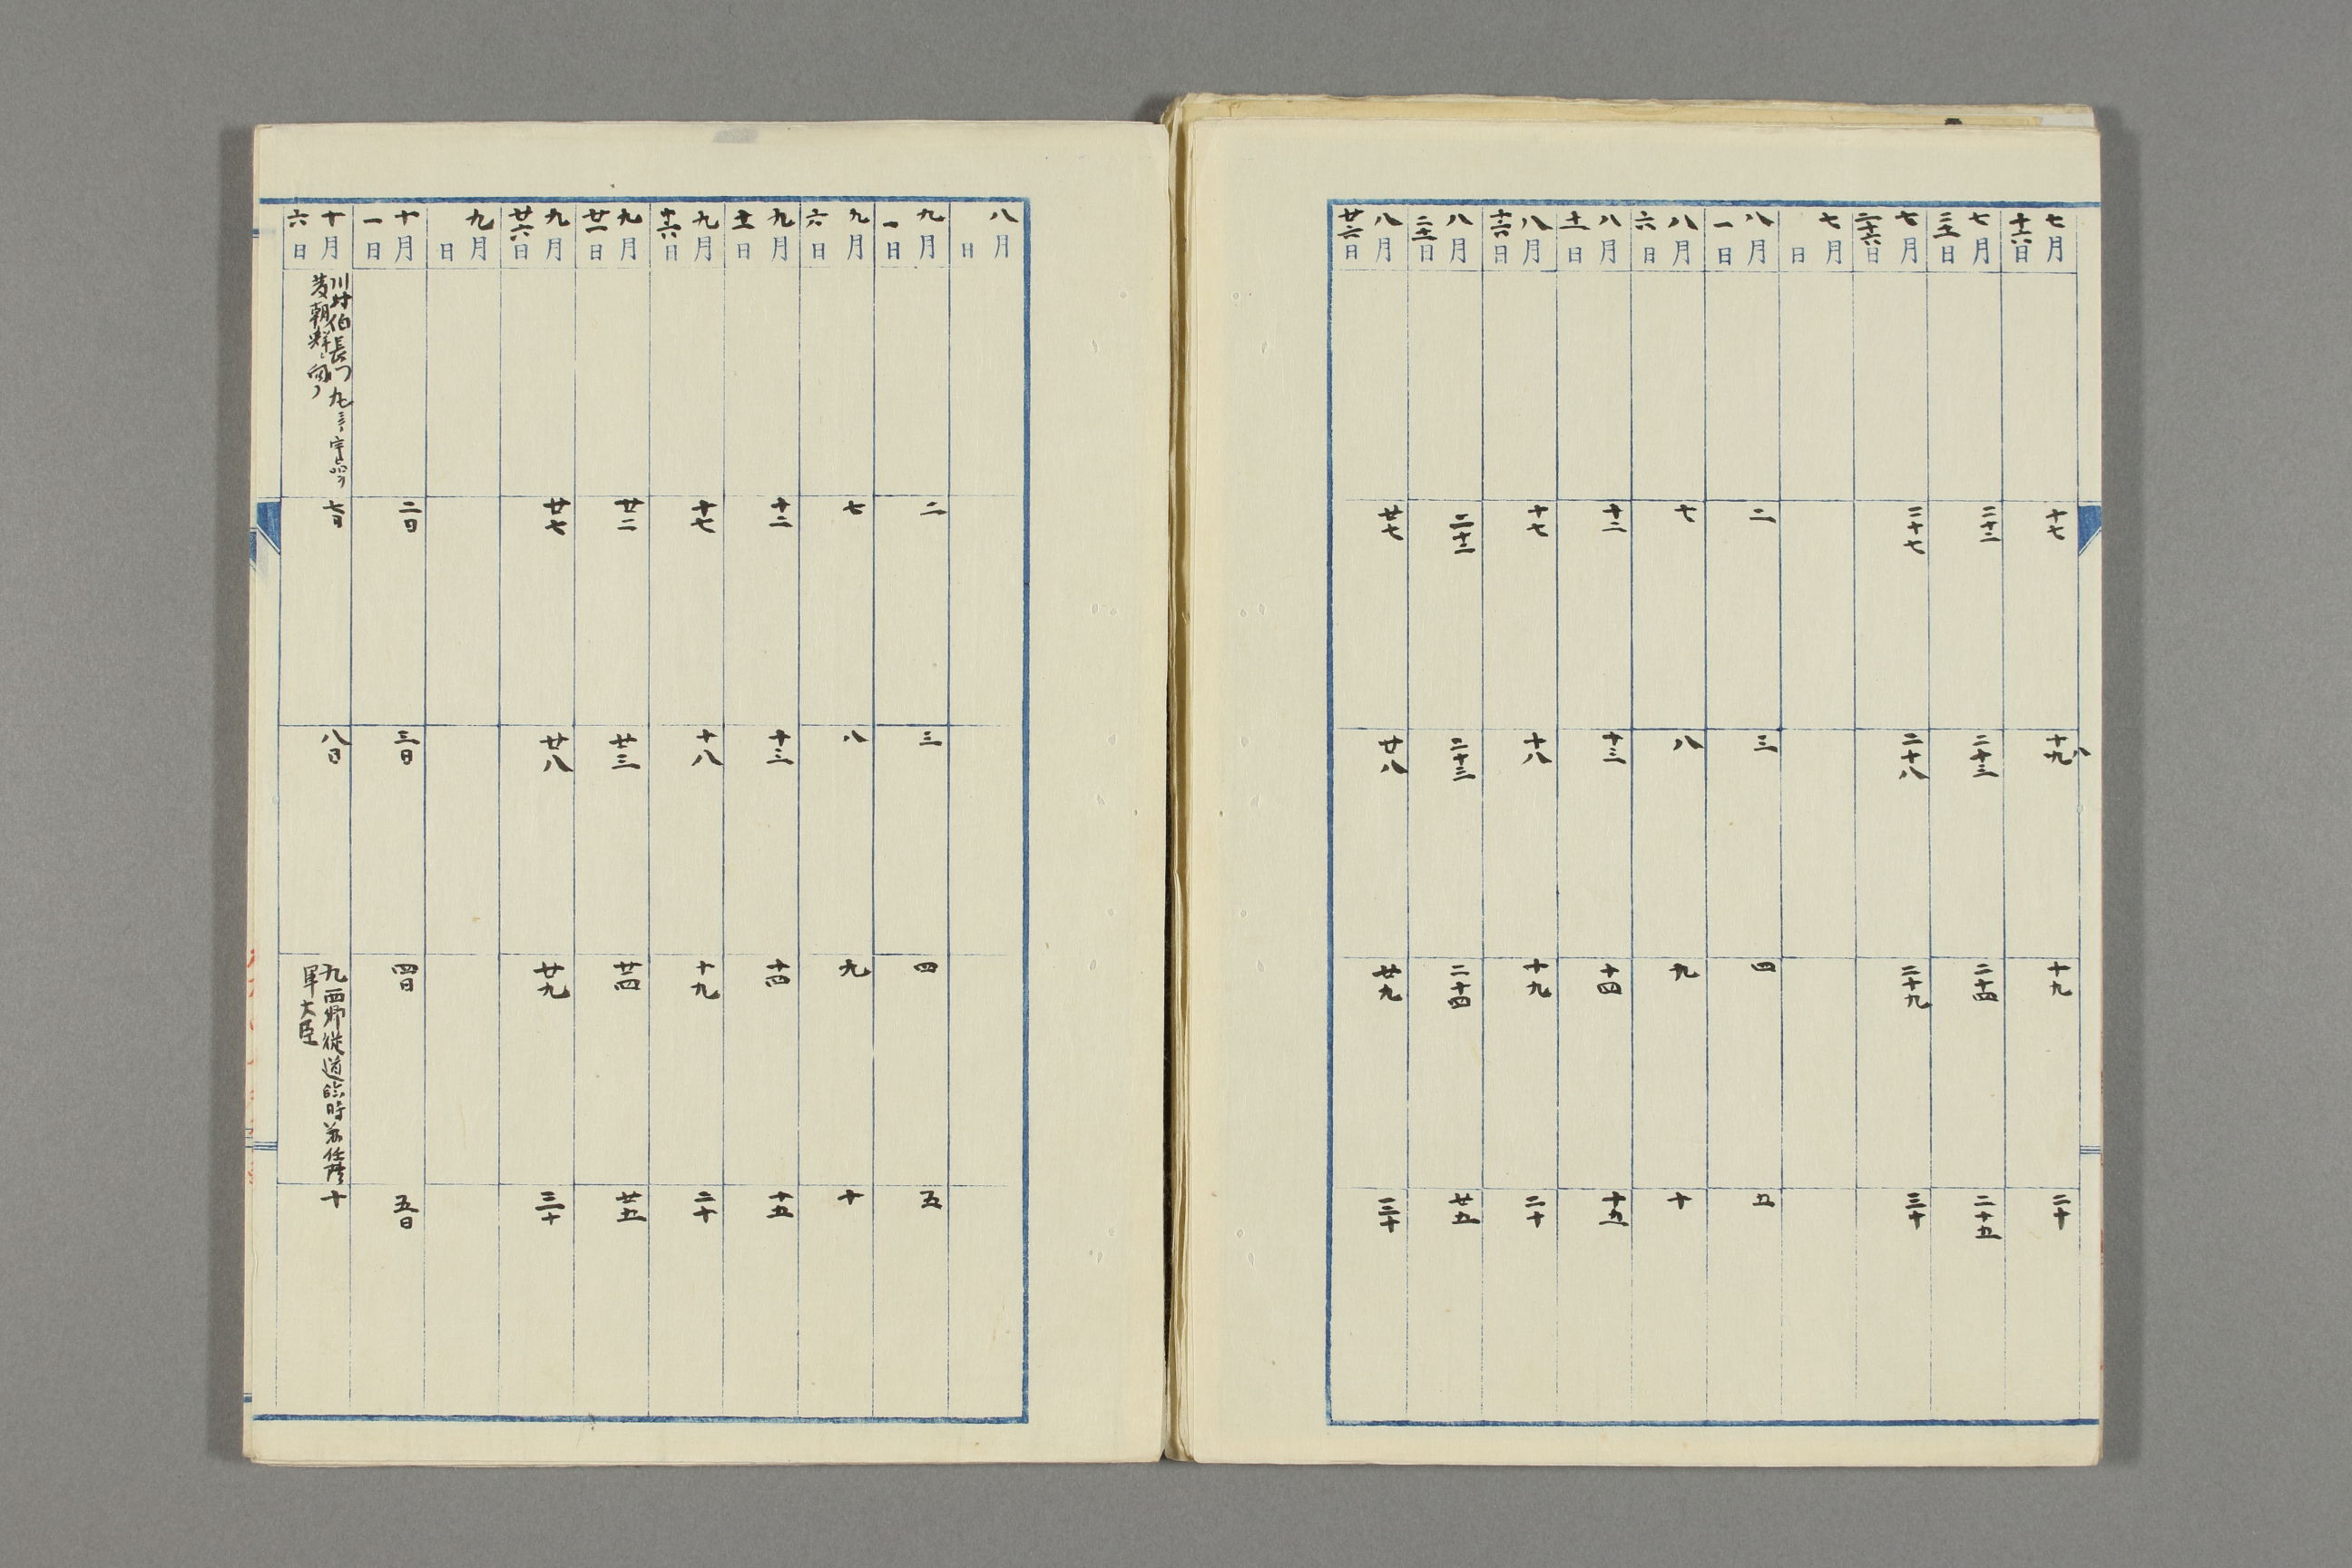 七月十六日
十七
十九八
十九
二十
七月二十一日
二十二
二十三
二十四
二十五
七月二十六日
二十七
二十八
二十九
三十
七月 日
八月一日
二
三
四
五
八月六日
七
八
九
十
八月十一日
十二
十三
十四
十五
八月十六日
十七
十八
十九
二十
八月二十一日
二十二
二十三
二十四
廿五
八月廿六日
廿七
廿八
廿九
三十
八月 日
九月一日
二
三
四
五
九月六日
七
八
九
十
九月十一日
十二
十三
十四
十五
九月十六日
十七
十八
十九
二十
九月廿一日
廿二
廿三
廿四
廿五
九月廿六日
廿七
廿八
廿九
三十
九月 日
十月一日
二日
三日
四日
五日
十月六日
川村伯長門丸ニテ宇品ヲ
発朝鮮ニ向フ
七日
八日
九 西郷従道臨時兼任陸
軍大臣
十